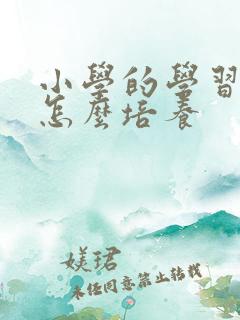 小學的學習
怎麼培養
媄珺
未任同意禁止转载